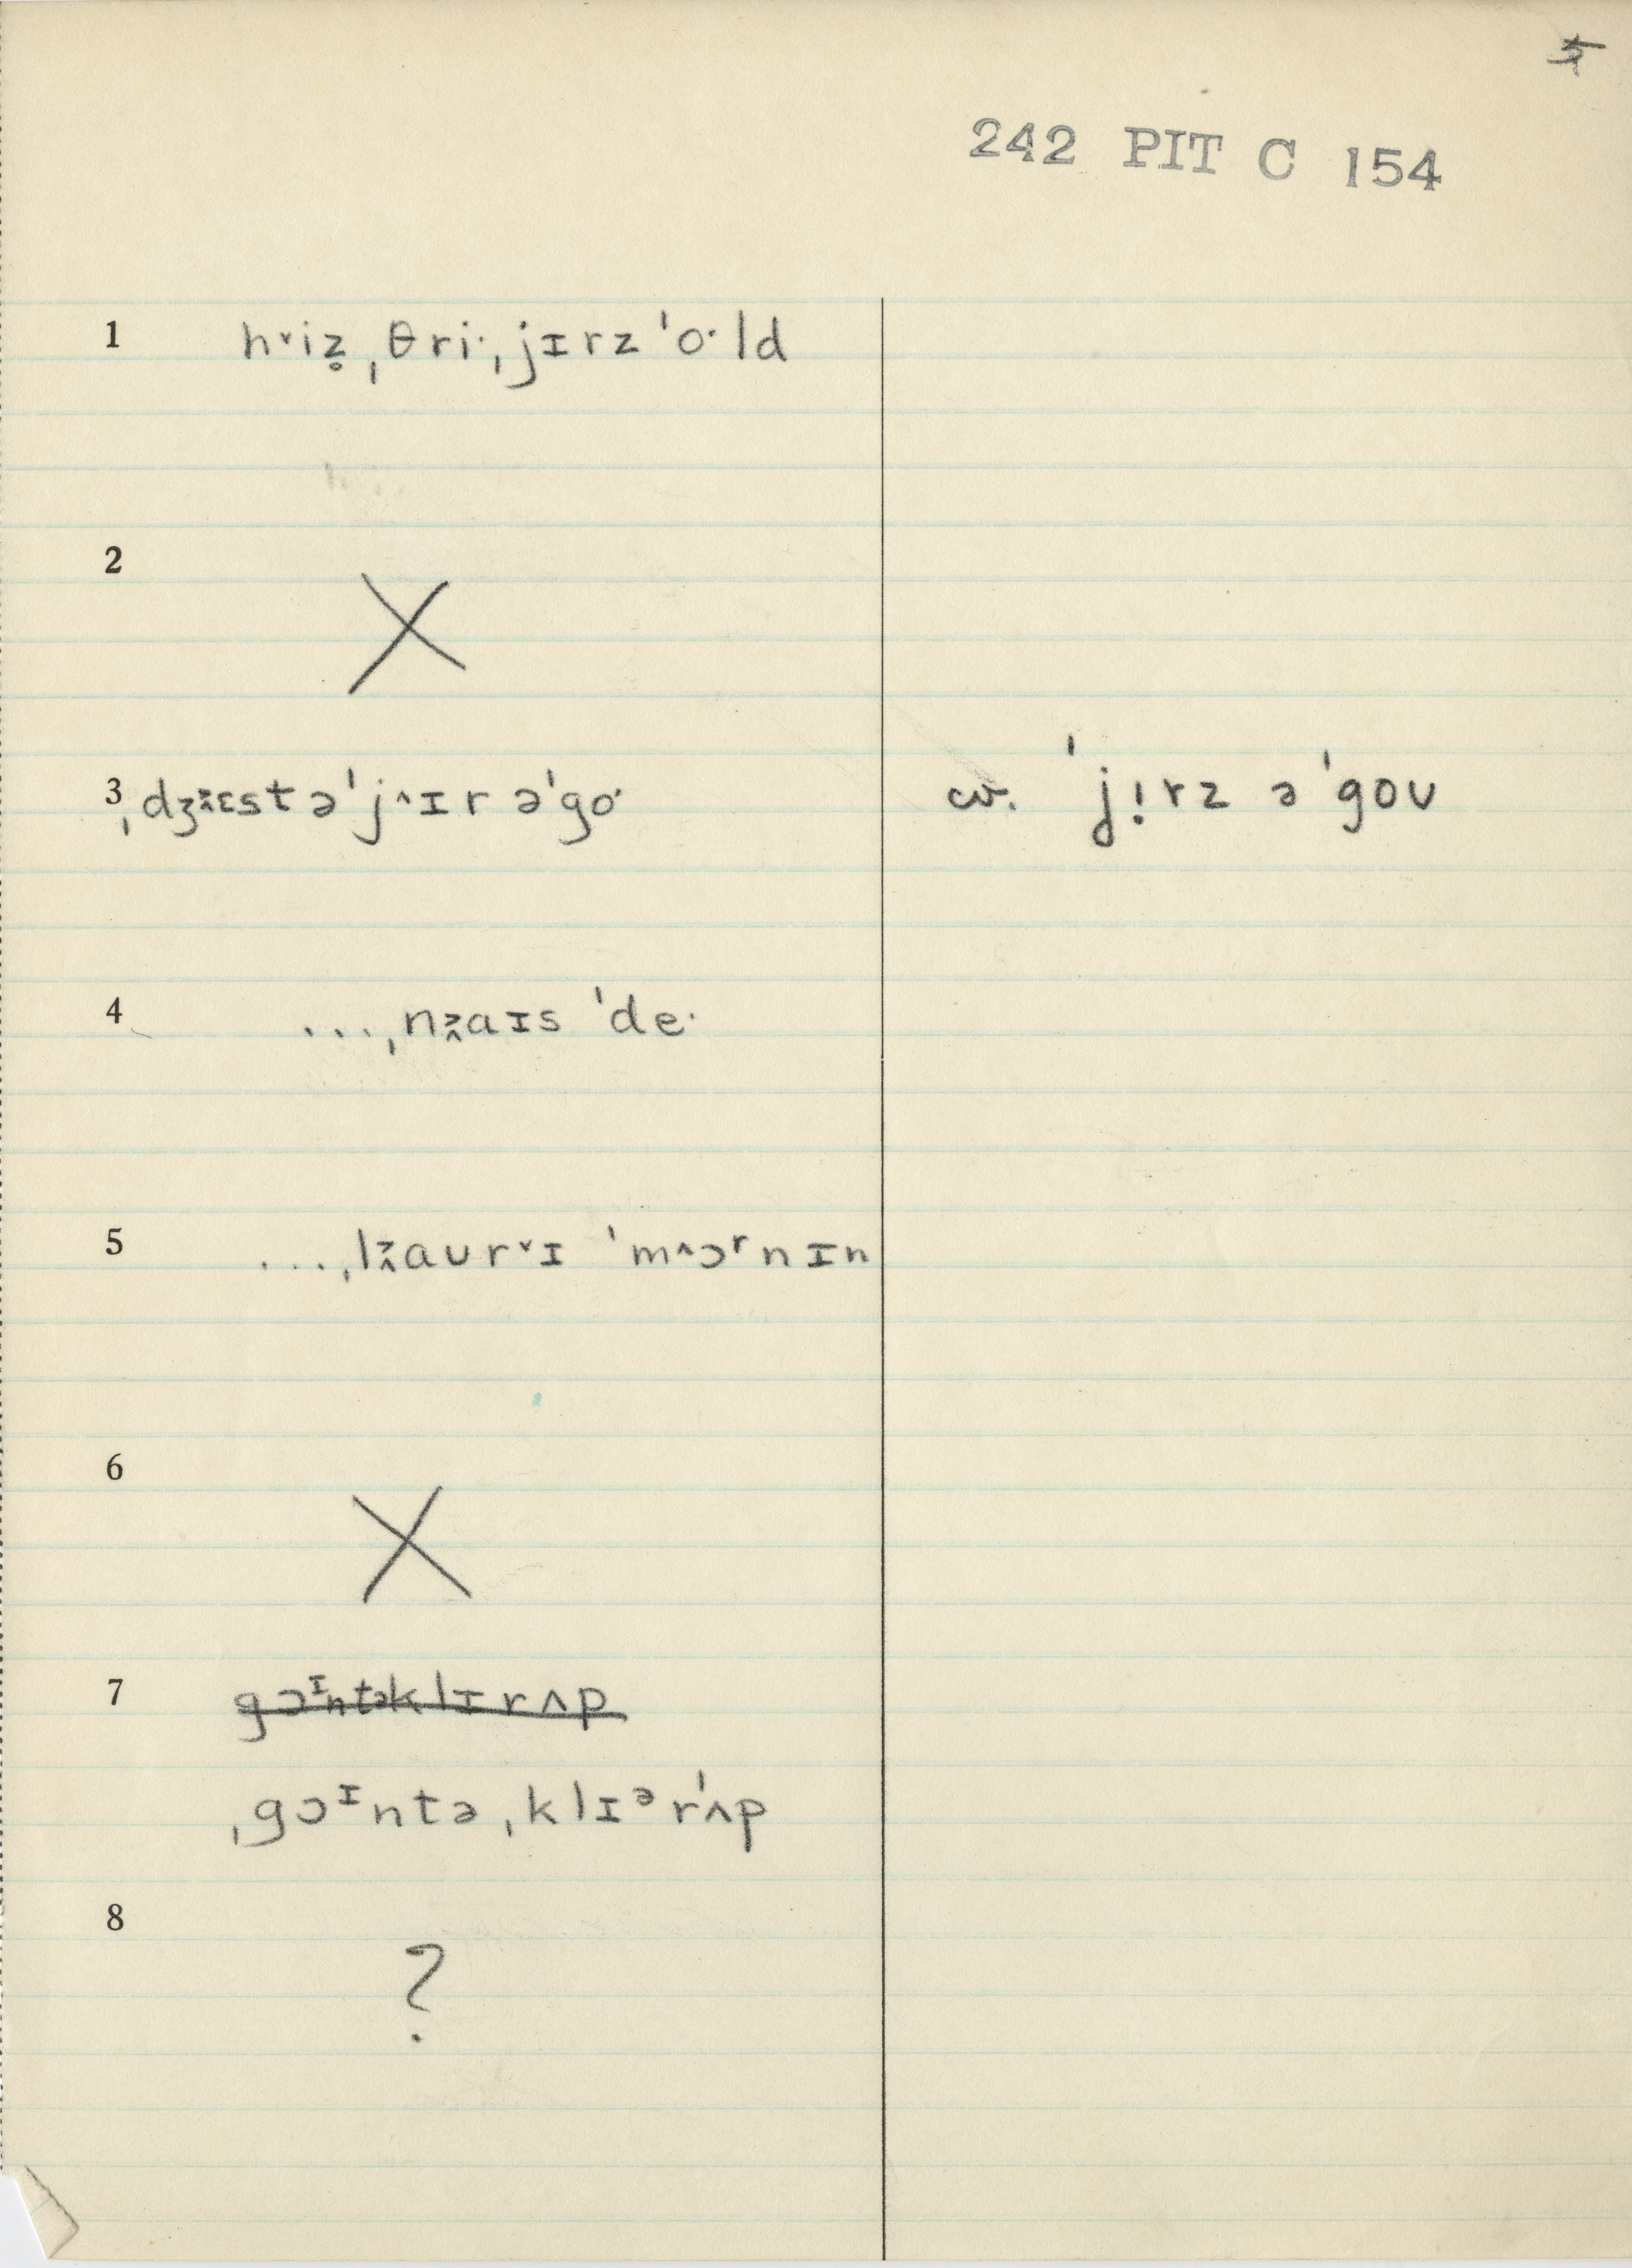 5
242 PIT C 154
1 hˇiz̥ ˌθri·ˌjɪrz ˈo·ld
2 X
3 ˌdʒɛst ə ˈj^ɪr ə ˈgo· cv. ˈjịrz ə ˈgoʊ
4 ...ˌnaɪs ˈde·
5 ...ˌlaʊrˇɪ ˈm^ɔʳnɪn
6 X
7 gɔᶦntəklɪrʌp
ˌgɔᶦntə ˌklɪᵊrˈʌp
8 ?